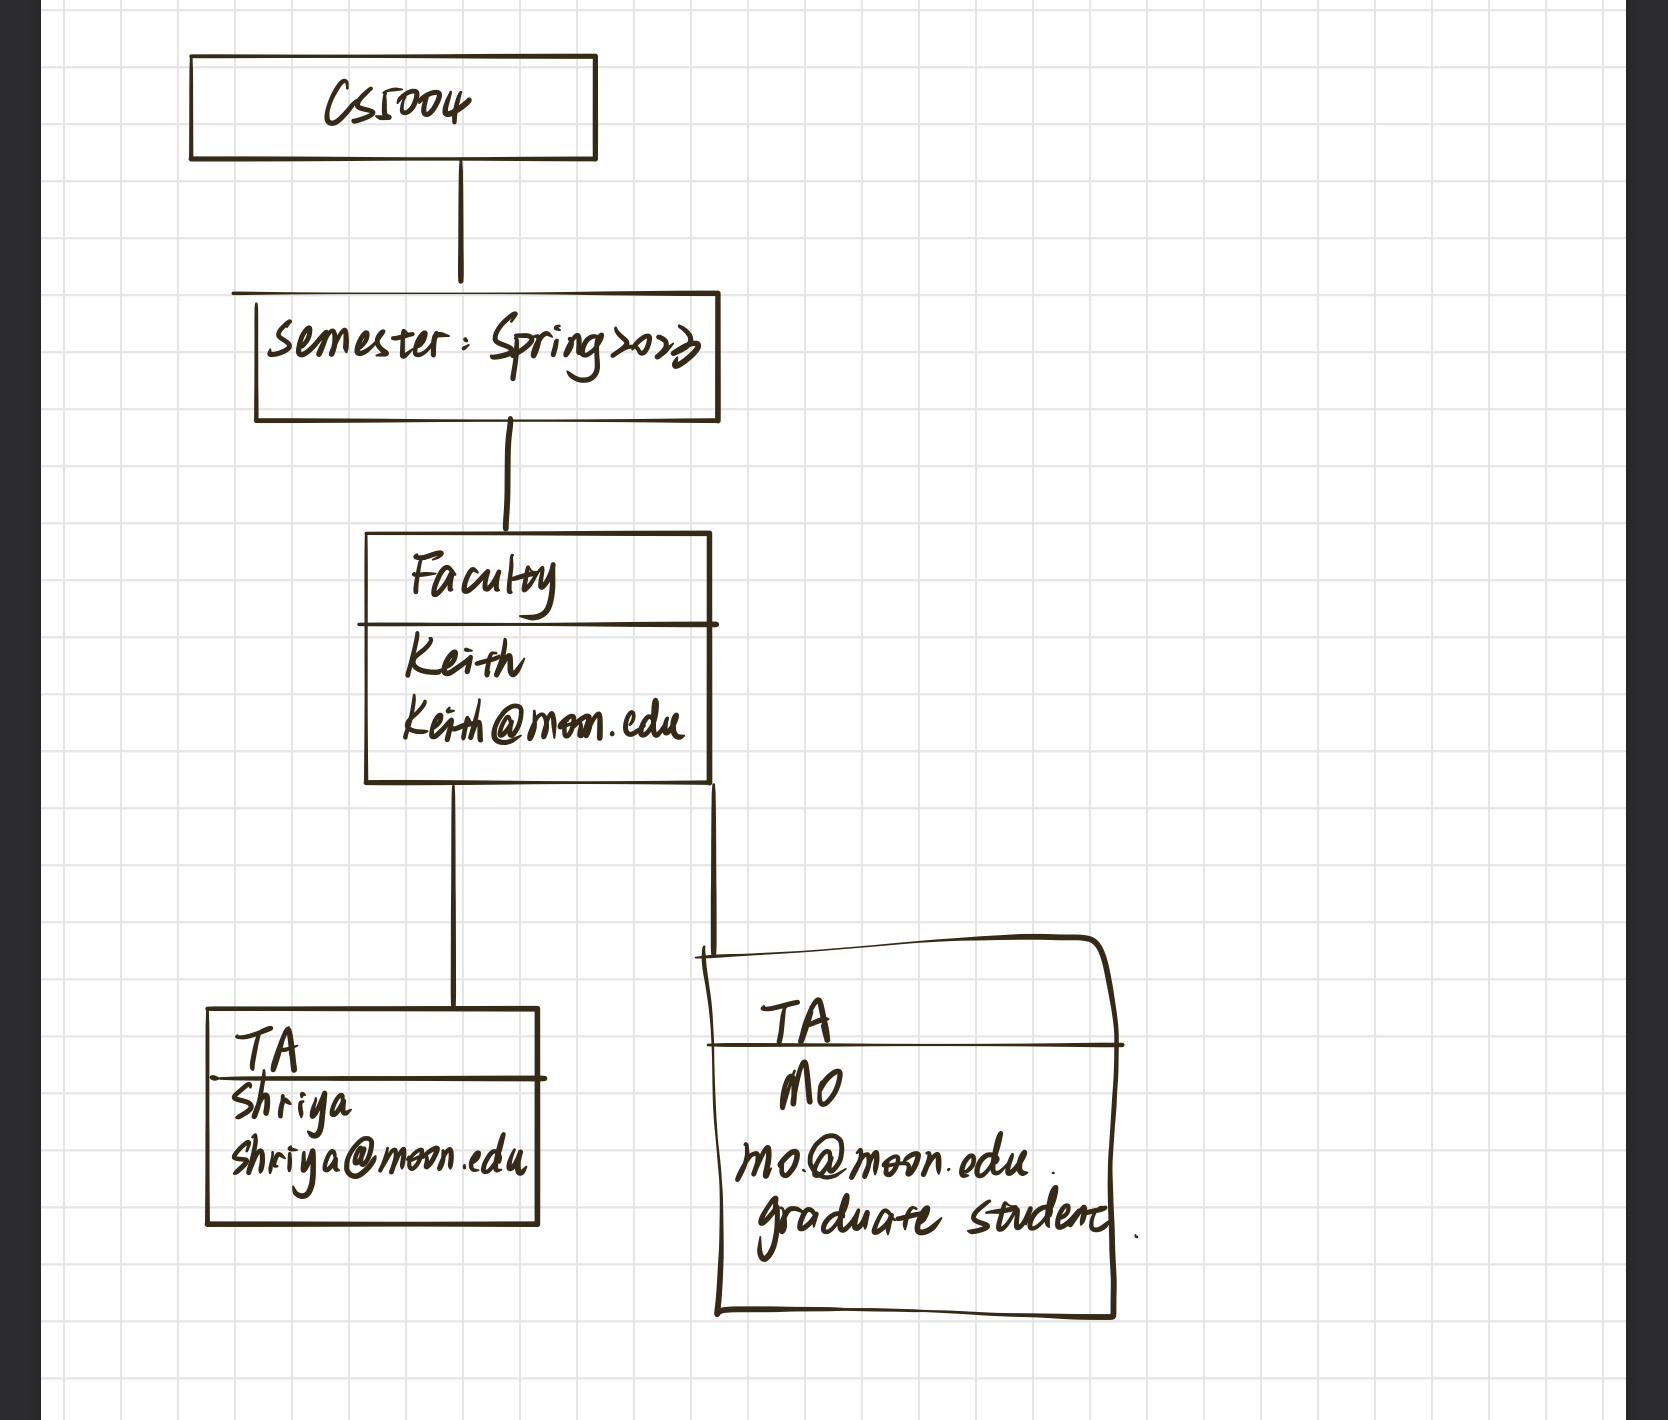 CS5004
Semester: Spring 2023
Faculty
Keith
Keith@moon.edu
TA
Shriya
shriya@moon.edu
TA
MO
mo@moon.edu
graduate student